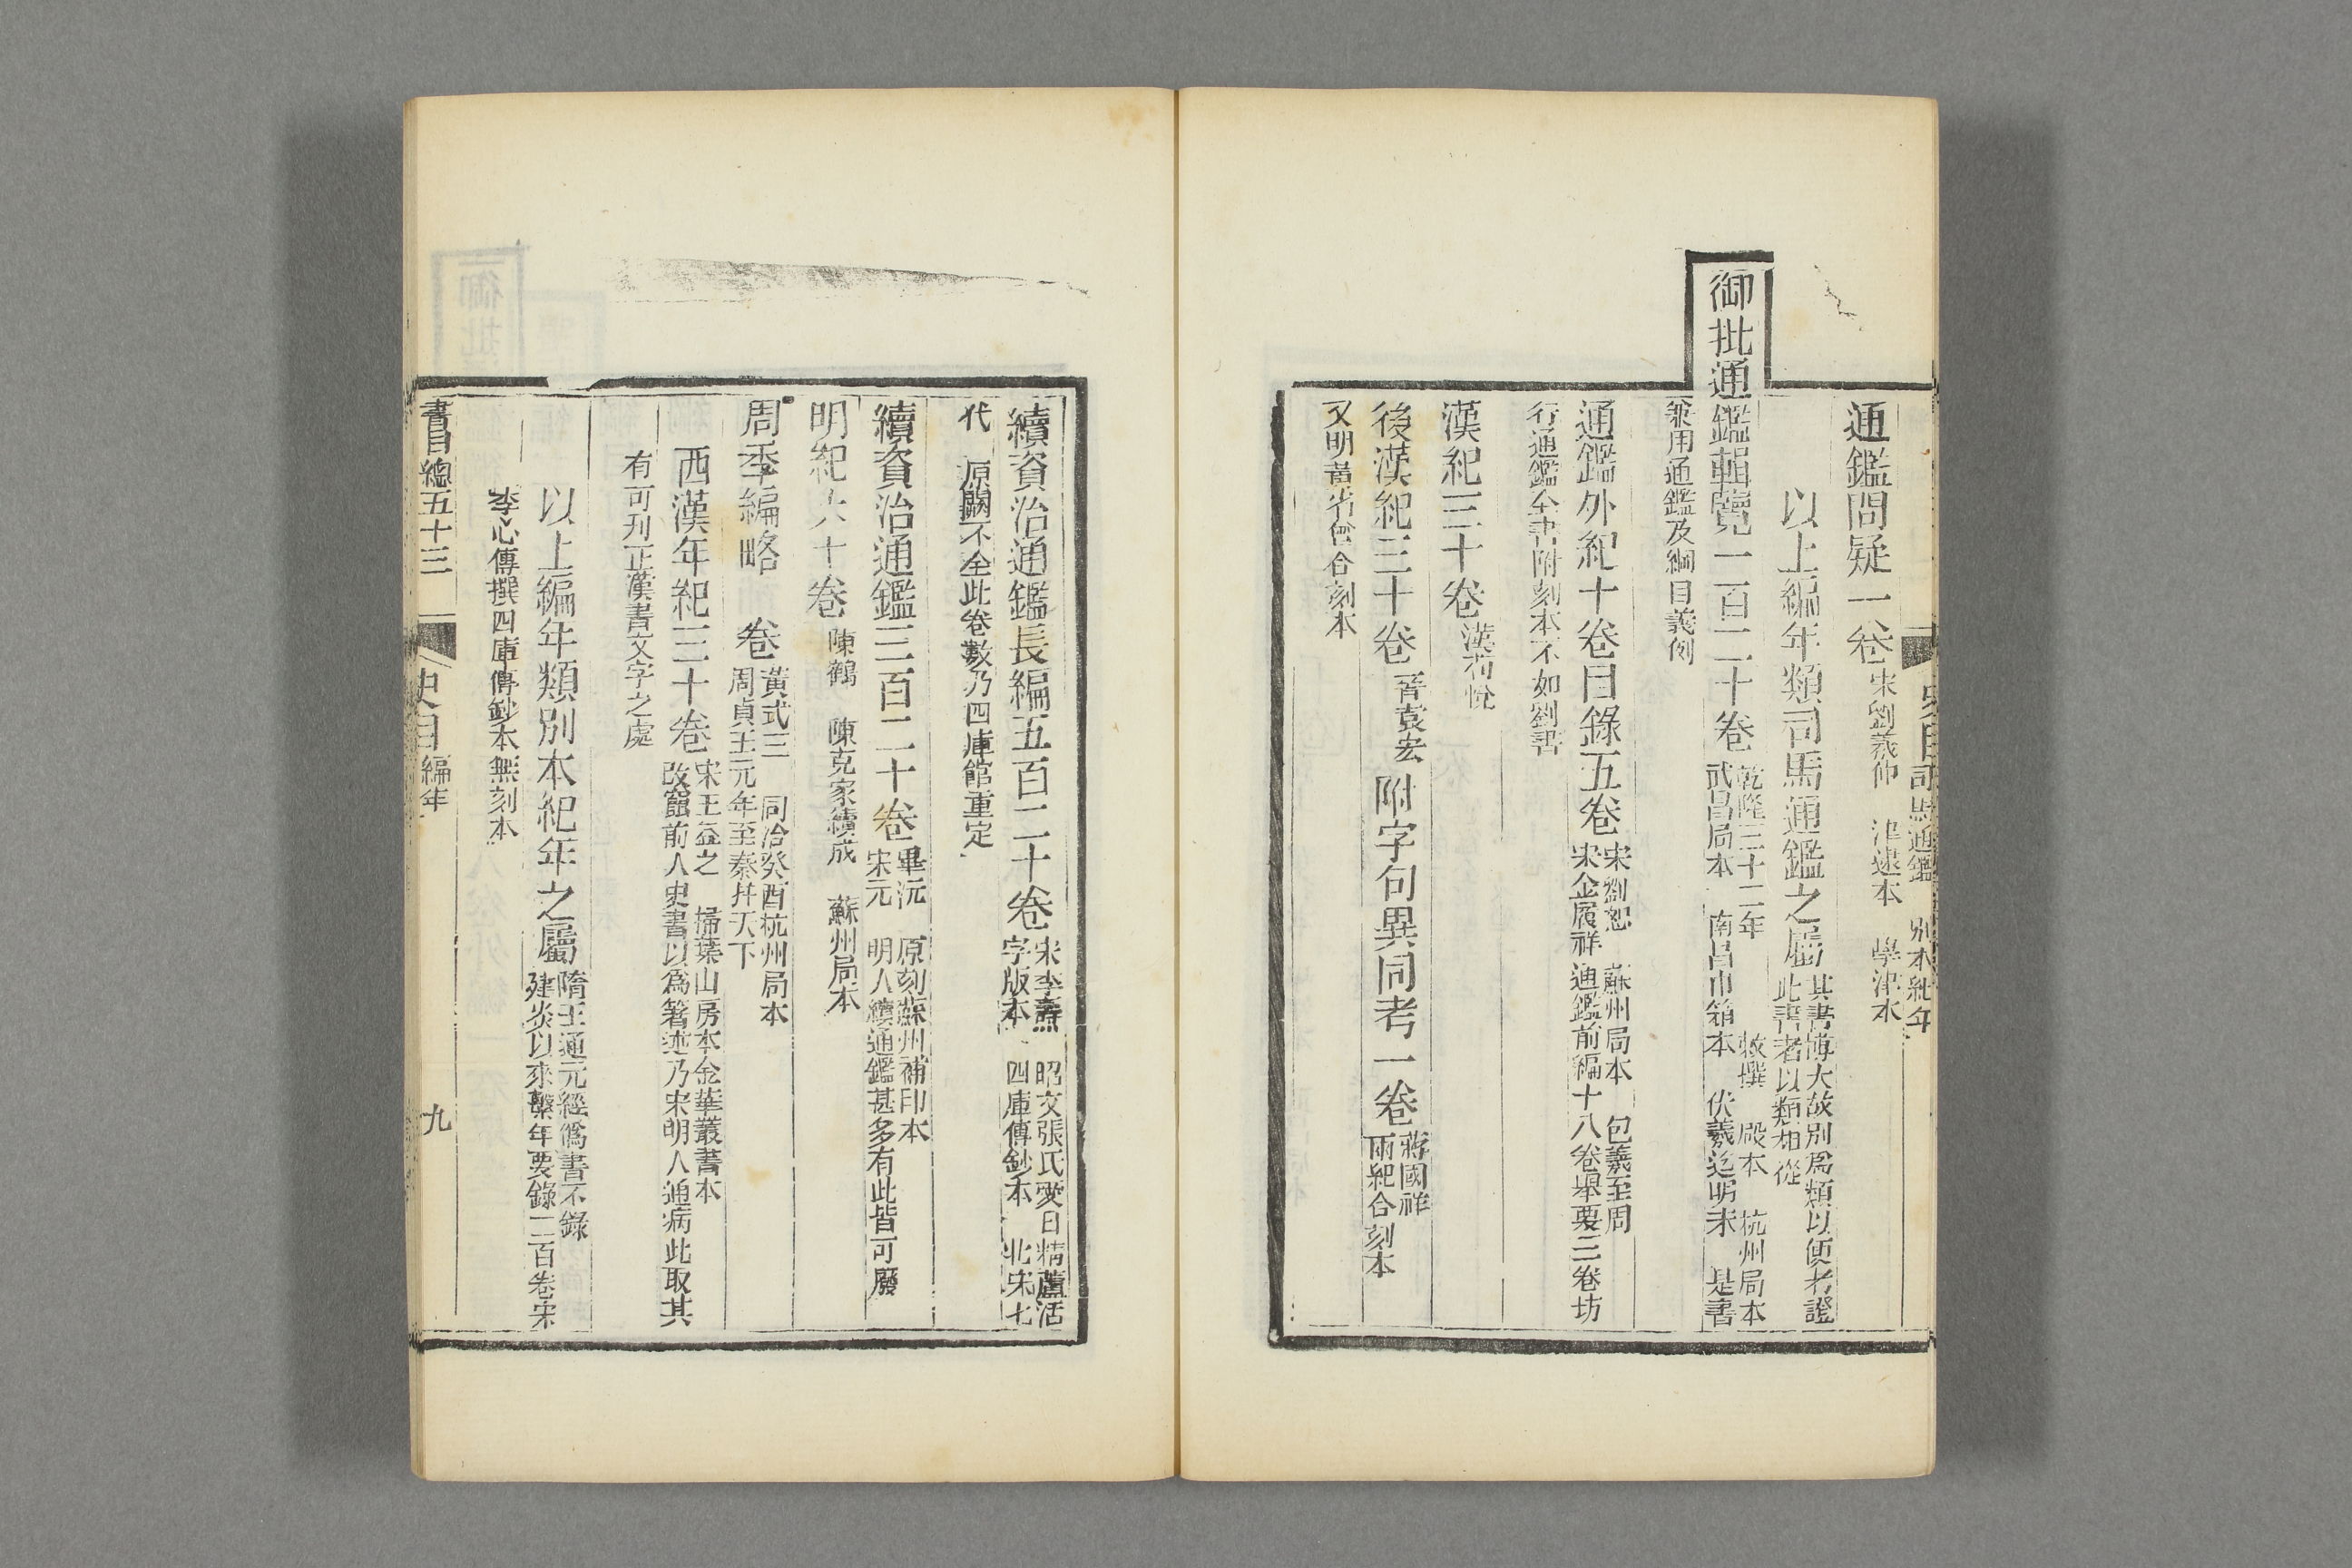 史目 司馬通鑑 別本紀年
通鑑問疑一卷 宋劉羲仲 津逮本 學津本
以上編年類司馬通鑑之屬 其書博大故別爲類以便考證
此書者以類相從
御批通鑑輯覽一百二十卷 乾隆三十二年 敕撰 殿本 杭州局本
武昌局本 南昌巾箱本 伏羲迄明末 是書
兼用通鑑及綱目義例
通鑑外紀十卷目錄五卷 宋劉恕 蘇州局本 包羲至周
宋金履祥通鑑前編十八卷舉要三卷坊
行通鑑全書附刻本不如劉書
漢紀三十卷 漢荀悅
後漢紀三十卷 晉袁宏 附字句異同考一卷 蔣國祥
兩紀合刻本
又明黃省曾合刻本
續資治通鑑長編五百二十卷 宋李燾 昭文張氏愛日精廬活
字版本 四庫傳鈔本 北宋七
代 原闕不全此卷數乃四庫館重定
續資治通鑑二百二十卷 畢沅 原刻蘇州補印本
宋元 明人續通鑑甚多有此皆可廢
明紀六十卷 陳鶴 陳克家續成 蘇州局本
周季編略 卷 黃式三 同治癸酉杭州局本
周貞王元年至秦幷天下
西漢年紀三十卷 宋王益之 掃葉山房本金華叢書本
改竄前人史書以爲著述乃宋明人通病此取其
有可刊正漢書文字之處
以上編年類別本紀年之屬 隋王通元經僞書不錄
建炎以來繫年要錄二百卷宋
李心傳撰四庫傳鈔本無刻本
書目總五十三 史目 編年 九